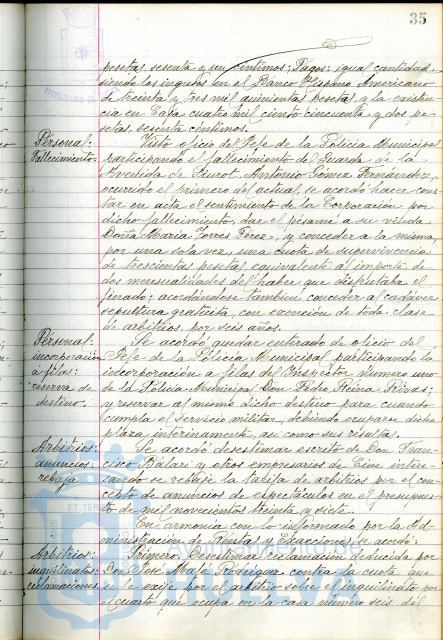 35
pesetas sesenta y un céntimos; Pagos: igual cantidad,
siendo los ingresos en el Banco Hispano Americano
de treinta y tres mil quinientas pesetas y la existen-
cia en Caja cuatro mil ciento cincuenta y dos pe-
setas, sesenta céntimos.
Personal:
Fallecimiento.
Visto oficio del Jefe de la Policía Municipal
participando el fallecimiento del Guarda de la
Avenida de Siurot, Antonio Gómez Fernández,
ocurrido el primero del actual, se acordó hacer cons-
tar en acta el sentimiento de la Corporación por
dicho fallecimiento, dar el pésame a su viuda
Doña María Torres Pérez, y conceder a la misma
por una sola vez, una cuota de supervivencia
de trescientas pesetas equivalente al importe de
dos mensualidades del haber que disfrutaba el
finado; acordándose también conceder al cadáver
sepultura gratuita, con exención de toda clase
de arbitrios, por seis años.
Personal:
incorporación
a filas:
reserva de
destino:
Se acordó quedar enterado de oficio del
Jefe de la Policía Municipal participando la
incorporación a filas del Inspector número uno
de la Policía Municipal Don Pedro Reina Rivas;
y reservar al mismo dicho destino para cuando
cumpla el servicio militar, debiendo ocuparse dicha
plaza interinamente, así como sus resultas.
Arbitrios:
anuncios:
rebaja
Se acordó desestimar escrito de Don Fran-
cisco Balari y otros empresarios de Cine intere-
sando se rebaje la tarifa de arbitrios por el con-
cepto de anuncios de espectáculos en el presupues-
to de mil novecientos treinta y siete.
En armonía con lo informado por la Ad-
ministración de Rentas y Exacciones, se acordó:
Arbitrios:
inquilinatos:
reclamaciones
Primero: Desestimar reclamación deducida por
Don José Malé Rodríguez contra la cuota que
se le exije por el arbitrio sobre el inquilinato por
el cuarto que ocupa en la casa número seis del